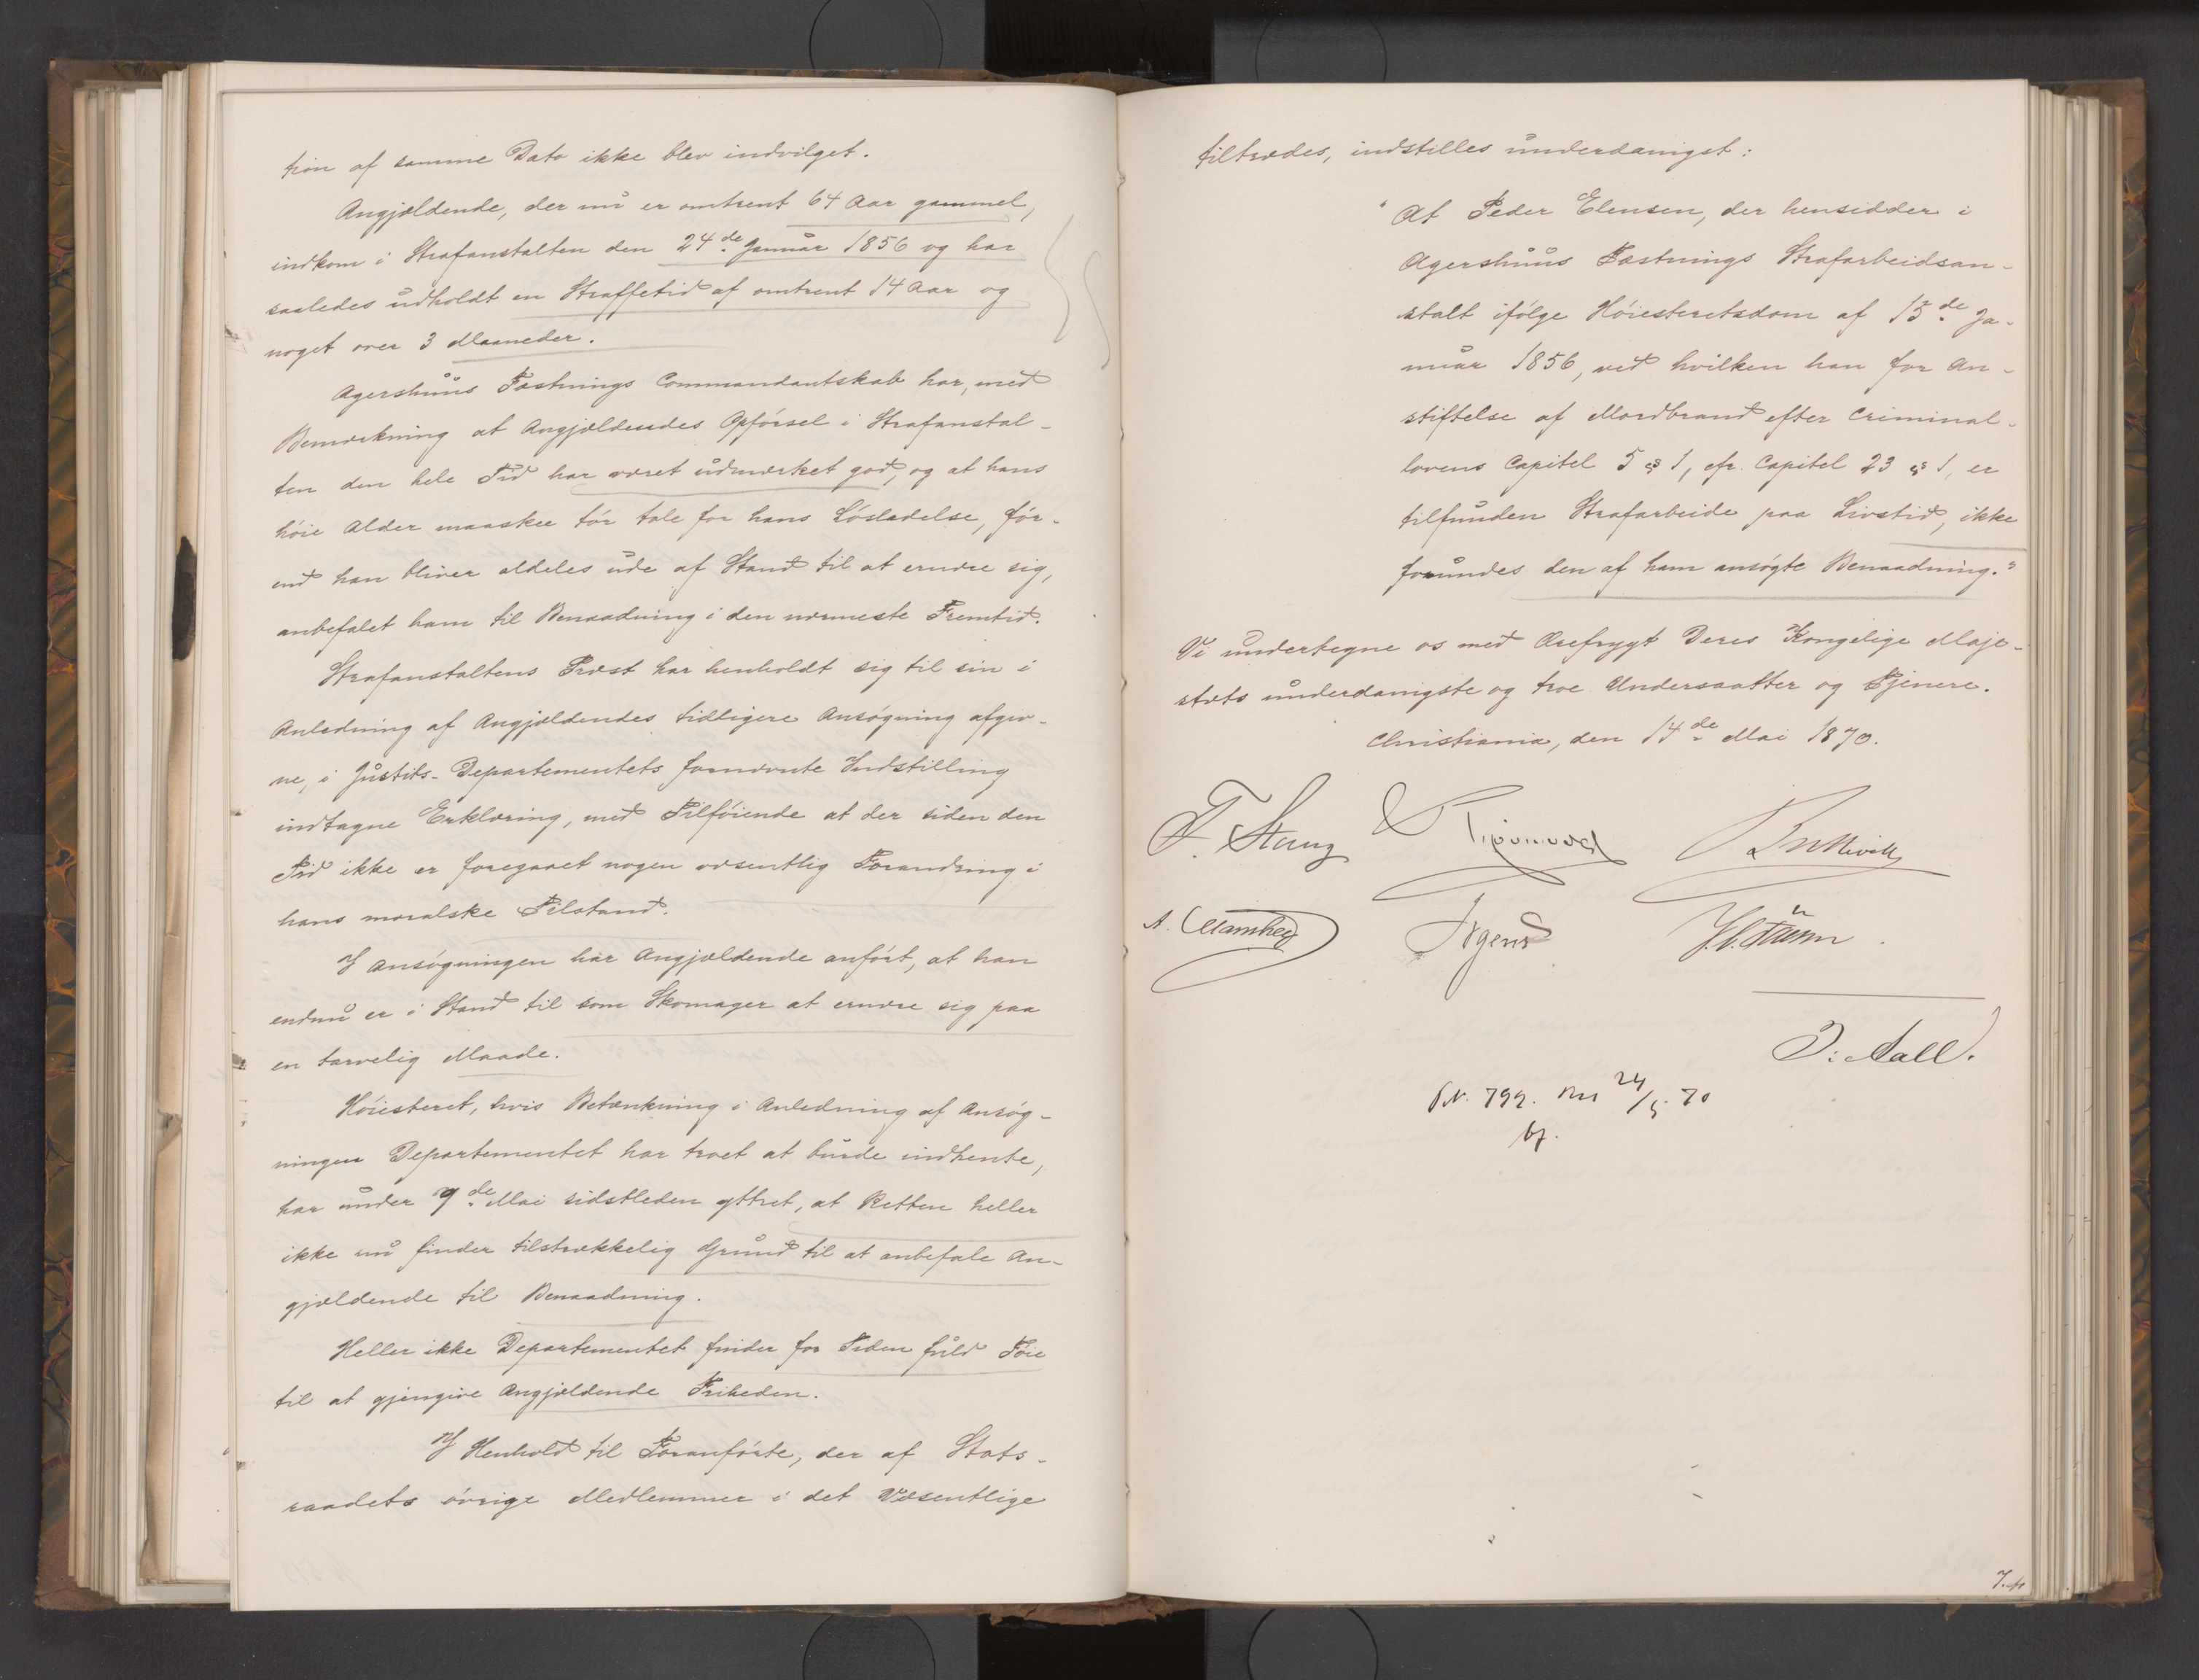 tion af samme Dato ikke blev indvilget.
Angjældende, der nu er omtrent 64 Aar gammel,
indkom i Strafanstalten den 24de Januar 1856 og har
saaledes udholdt en Straffetid af omtrent 14 Aar og
noget over 3 Maaneder.
Agershuus Fæstnings Commandantskab har, med
Bemærkning at Angjældendes Opførsel i Strafanstal-
ten den hele Tid har været udmærket god, og at hans
høie Alder maaskee tør tale for hans Løsladelse, før-
end han bliver aldeles ude af Stand til at ernære sig,
anbefalet ham til Benaadning i den nærmeste Fremtid.
Strafanstaltens Præst har henholdt sig til sin i
Anledning af Angjældendes tidligere Ansøgning afgiv-
ne, i Justits-Departementets fornævnte Indstilling
indtagne Erklæring, med Tilføiende at der siden den
Tid ikke er foregaaet nogen væsentlig Forandring i
hans moralske Tilstand.
I Ansøgningen har Angjældende anført, at han
endnu er i Stand til som Skomager at ernære sig paa
en tarvelig Maade.
Høiesteret, hvis Betænkning i Anledning af Ansøg-
ningen Departementet har troet at burde indhente,
har under 9de Mai sidstleden yttret, at Retten heller
ikke nu finder tilstrækkelig Grund til at anbefale An-
gjældende til Benaadning.
Heller ikke Departementet finder for Tiden fuld Føie
til at gjengive Angjældende Friheden.
I Henhold til Foranførte, der af Stats-
raadets øvrige Medlemmer i det Væsentlige
tiltrædes, indstilles underdanigst:
"At Peder Elensen, der hensidder i
Agershuus Fæstnings Strafarbeidsan-
stalt ifølge Høiesteretsdom af 15de Ja-
nuar 1856, ved hvilken han for An-
stiftelse af Mordbrand efter Criminal-
lovens Capitel 5 § 1, cfr. Capitel 23 § 1, er
tilfunden Strafarbeide paa Livstid, ikke
forundes den af ham ansøgte Benaadning."
Vi undertegne os med Ærefrygt Deres Kongelige Maje-
stæts underdanigste og troe Undersaatter og Tjenere.
Christiania, den 14de Mai 1870.
F. Stang
A. Manthey
Irgens
J. Aall.
799. 24/5 70